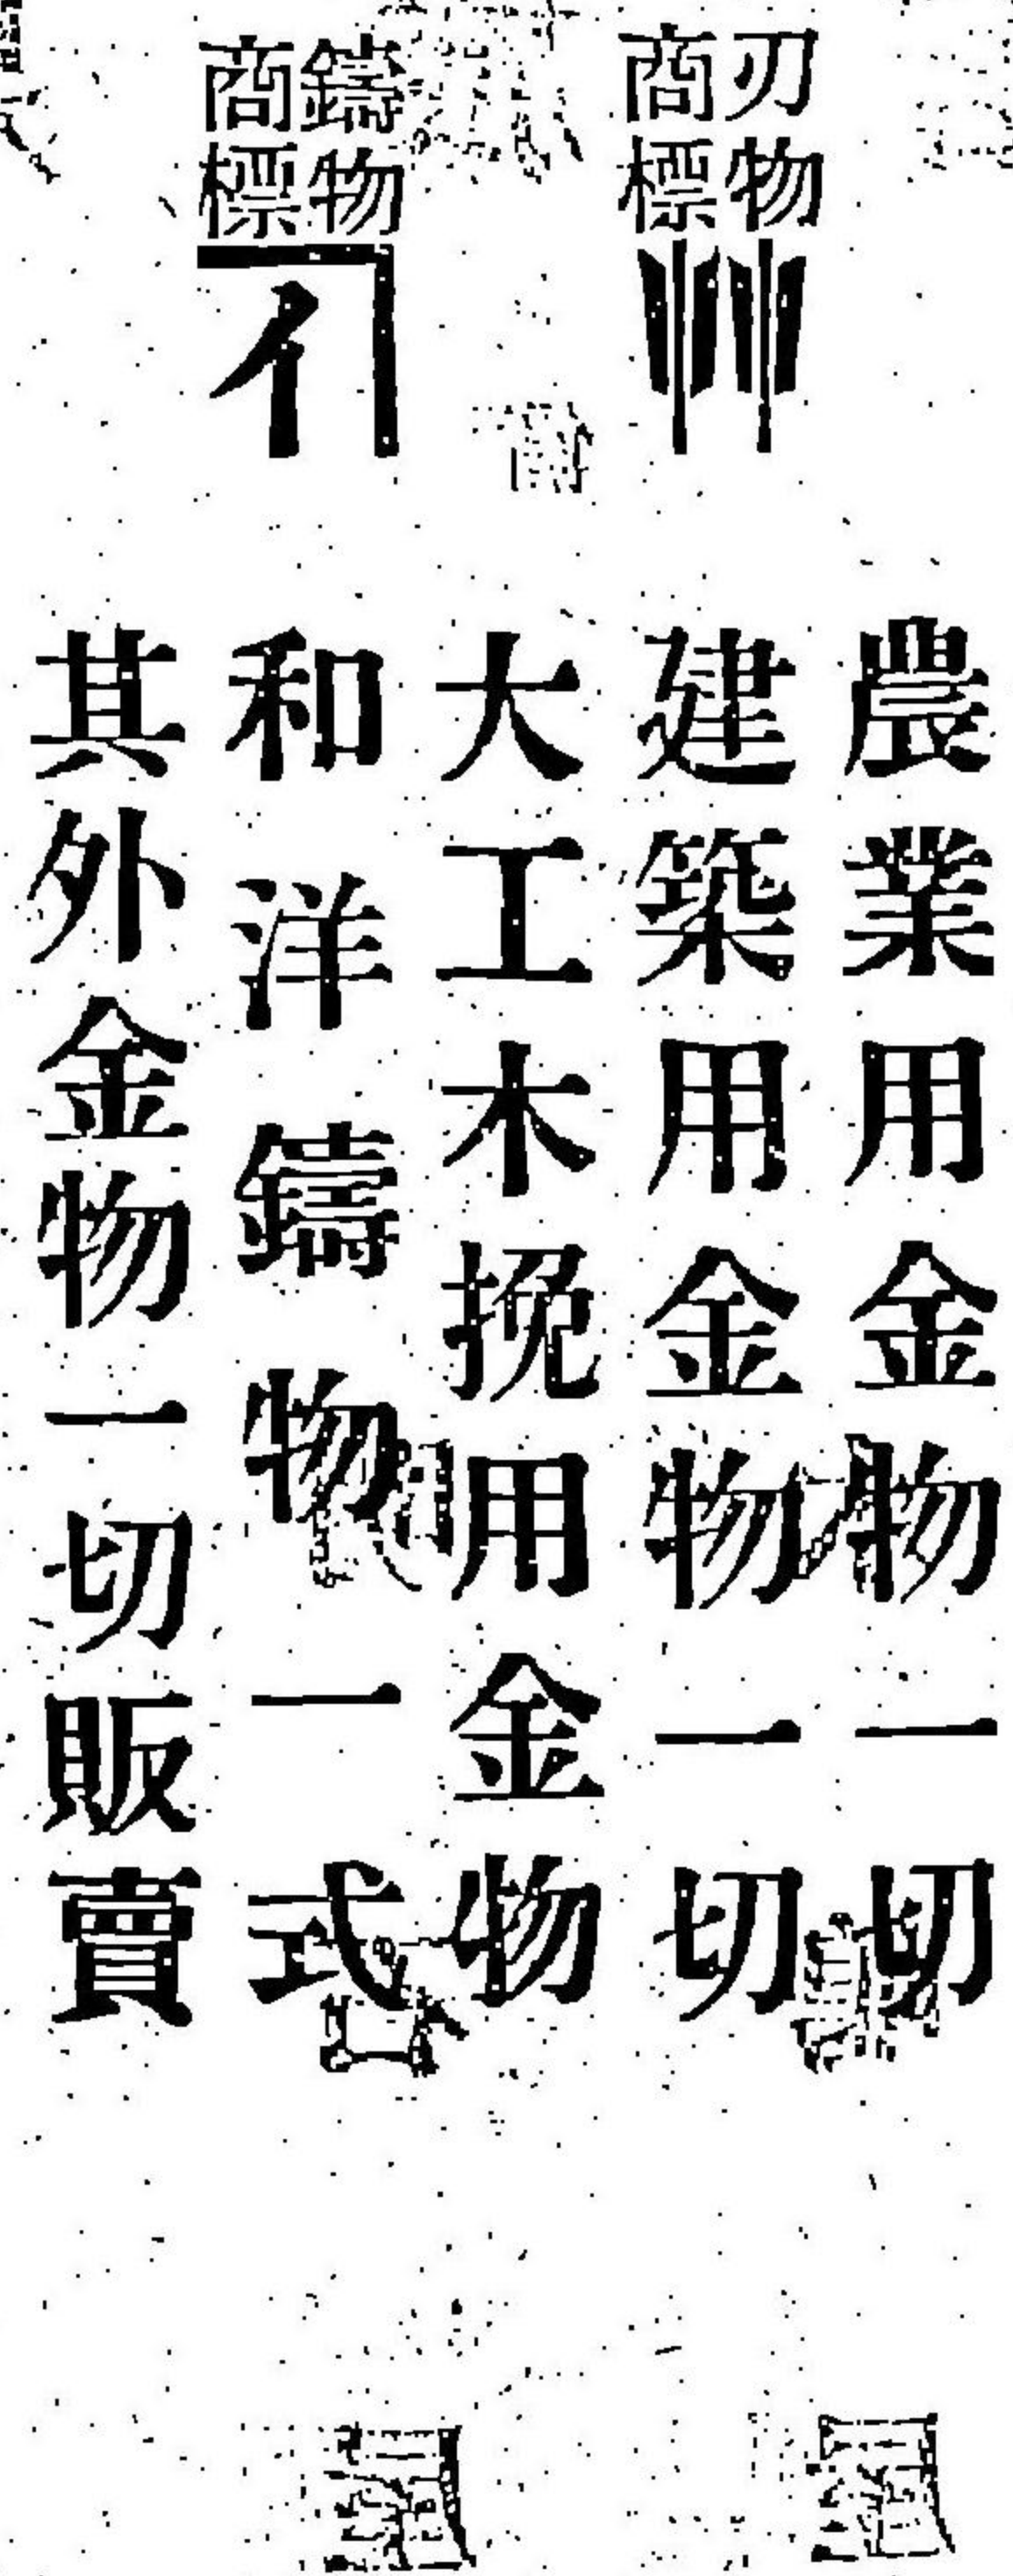 刃物
商標
鑄物
商標
イ
農業用金物一切
建築用金物一切
大工木挽用金物
和洋鑄物一式
其外金物一切販賣